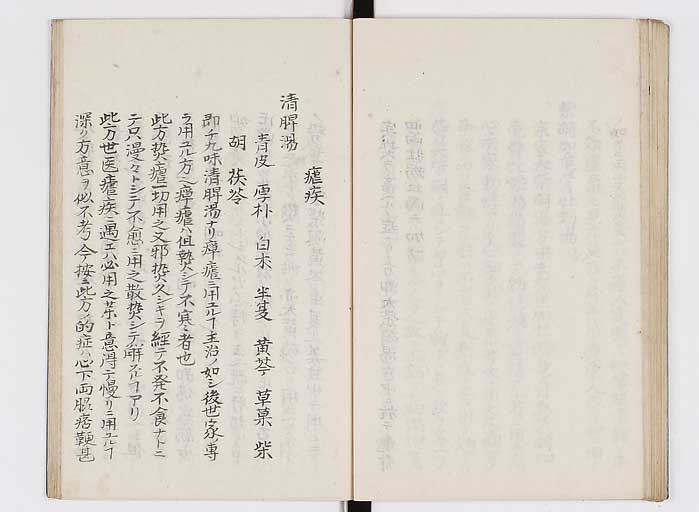 瘧疾
清脾湯
青皮 厚朴 白朮 半夏 黄芩 草菓 柴
胡 茯苓
即チ九味清脾湯ナリ瘅瘧ニ用ユルヿ主治ノ如シ後世家ノ專
ラ用ユル方也瘅瘧ハ但熱シテ不寒者也
此方熱瘧一切用之又邪熱久シキヲ経テ不発不食ナトニ
テ只漫々トシテ不愈ニ用之散熱シテ解スルヿアリ
此方世医瘧疾ニ遇エハ必用之茶ト意得テ慢リニ用ユルヿ
深ク方意ヲ似不考今按ニ此方ノ的症ハ心下両脇痞鞕甚